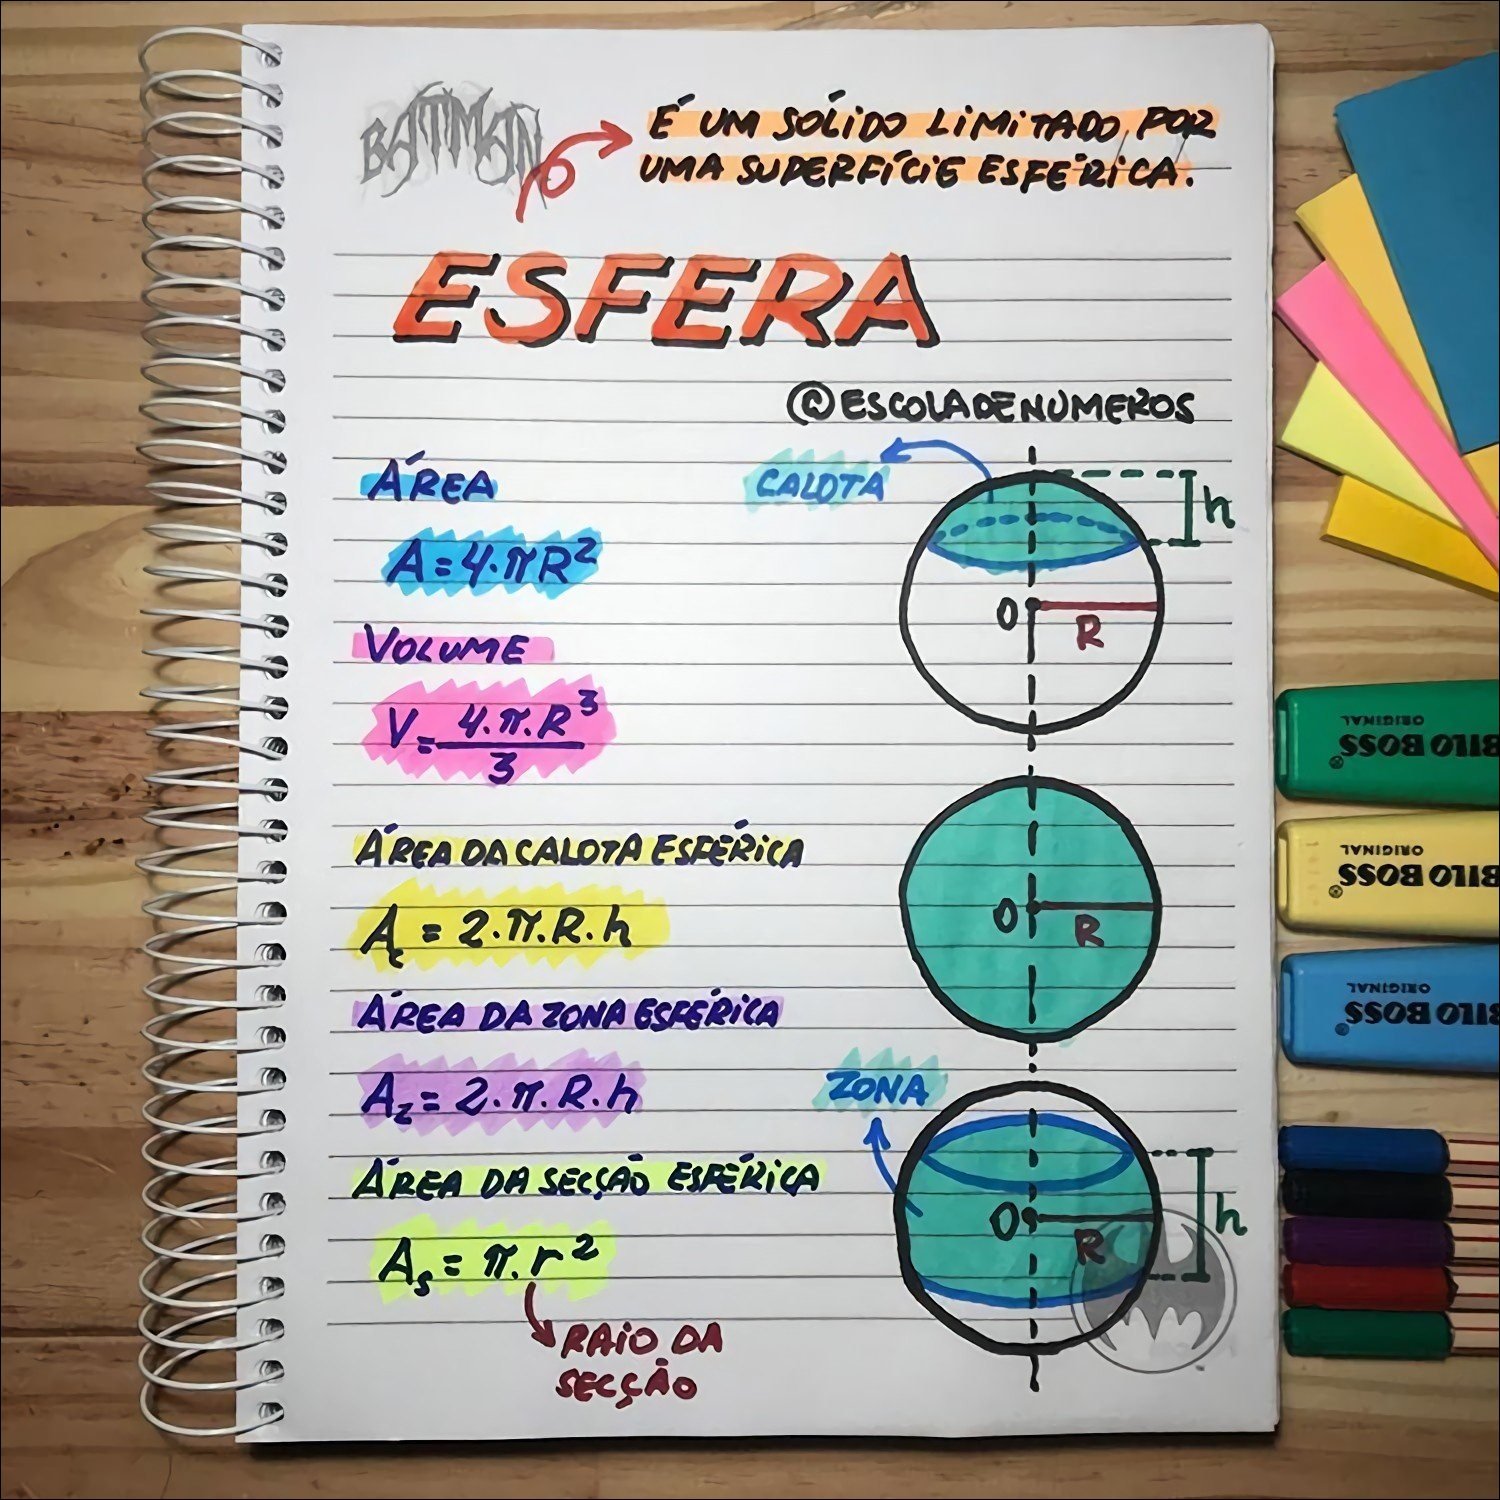 BATMAN
É UM SÓLIDO LIMITADO POR
UMA SUPERFÍCIE ESFÉRICA.
ESFERA
@ESCOLADENÚMEROS
ÁREA
CALOTA
h
A=4·πR²
O
R
VOLUME
V=4.π.R³/3
ÁREA DA CALOTA ESFÉRICA
A꜀ = 2.π.R.h
O
R
ÁREA DA ZONA ESFÉRICA
Az = 2.π.R.h
ZONA
ÁREA DA SECÇÃO ESFÉRICA
h
O
R
As = π.r²
RAIO DA
SECÇÃO
BILO BOSS
ORIGINAL
BILO BOSS
ORIGINAL
BILO BOSS
ORIGINAL